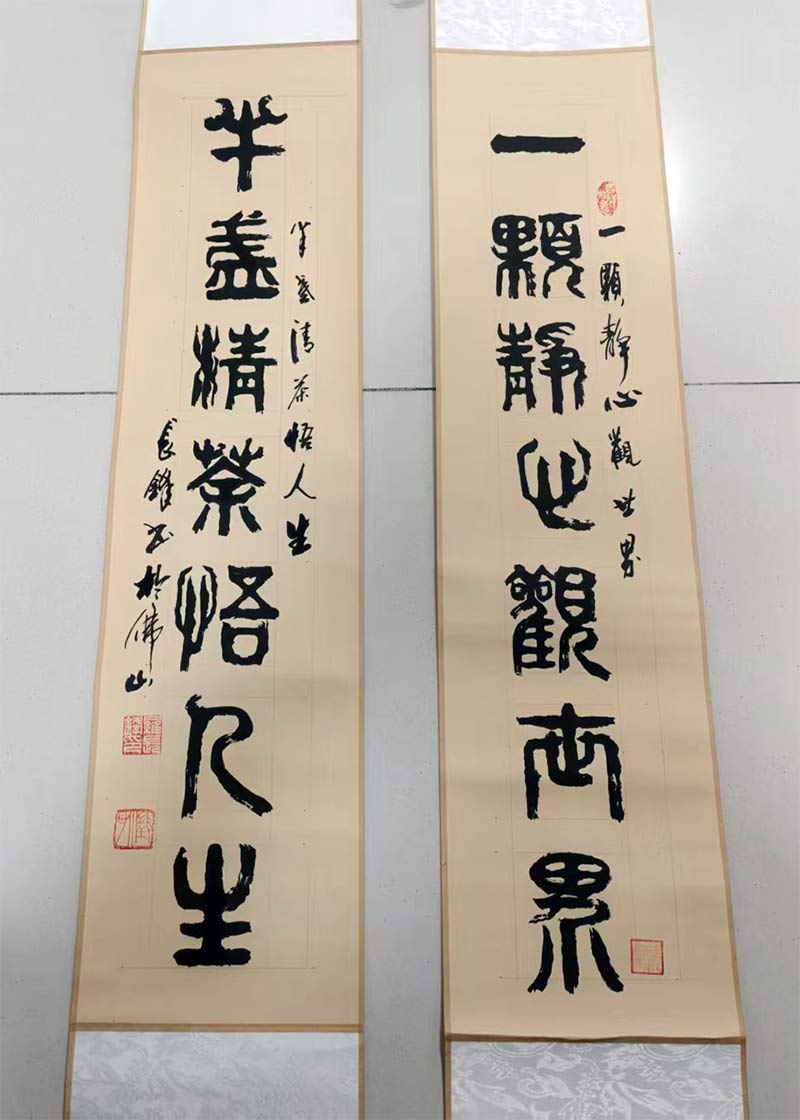 一顆靜心觀世界
一顆靜心觀世界
半盞清茶悟人生
半盞清茶悟人生
長鋒書於佛山